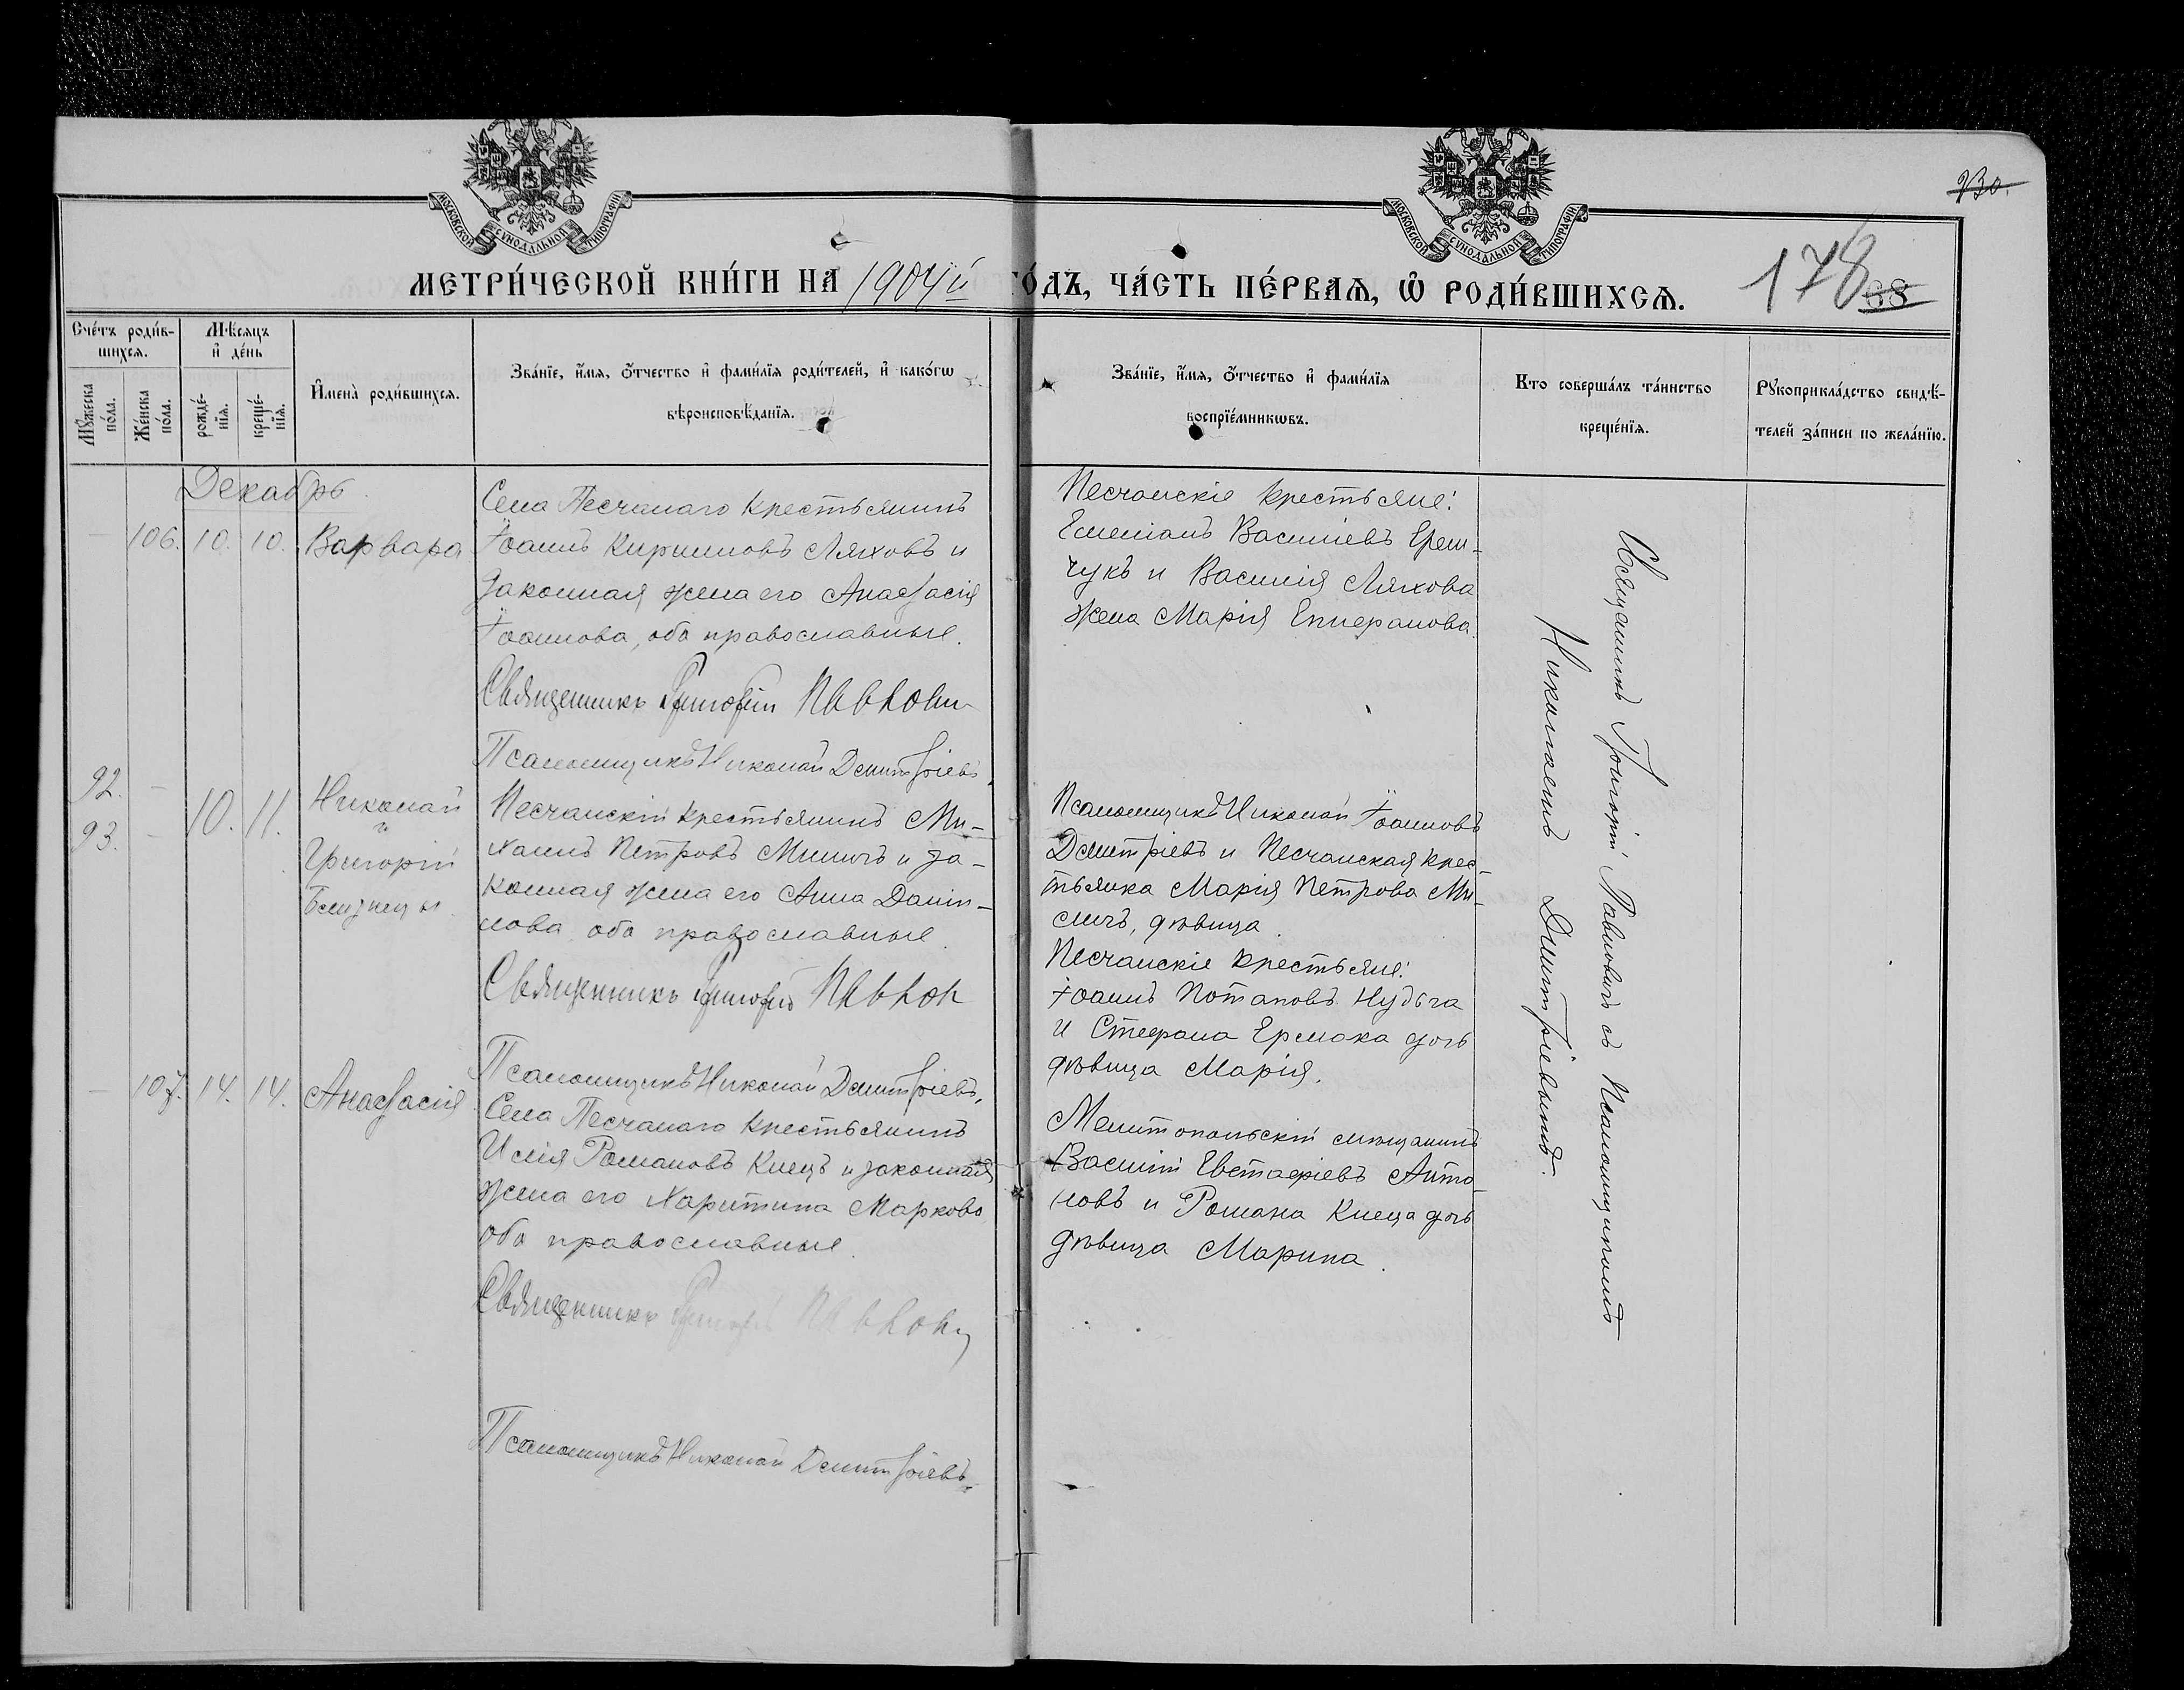 МОСКОВСКОЙ СѴНОДАЛЬНОЙ ТИПОГРАФІИ
МОСКОВСКОЙ СѴНОДАЛЬНОЙ ТИПОГРАФІИ
230.
МЕТРИ́ЧЕСКОЙ КНИ́ГИ НА 1904й ГО́ДЪ, ЧА́СТЬ ПЕ́РВАѦ, Ѡ РОДИ́ВШИХСѦ.
178
88
Сче́тъ роди́в-
шихсѧ.
Мꙋ́жеска
по́ла.
Же́нска
по́ла.
Мѣ́сяцъ
и҆ де́нь
рожде́-
нїѧ.
креще́-
нїѧ.
И҆мена̀ роди́вшихсѧ.
Зва́нїе, и҆́мѧ, ѻ҆́тчество и҆ фами́лїѧ роди́телей, и҆ како́гѡ
вѣроисповѣ́данїѧ.
Зва́нїе, и҆́мѧ, ѻ҆́тчество и҆ фами́лїѧ
воспрїе́мникѡвъ.
Кто соверша́лъ та́инство
креще́нїѧ.
Рꙋкоприкла́дство свидѣ́-
телей за́писи по жела́нїю.
Декабрь.
— 106. 10. 10. Варвара
Села Песчанаго крестьянинъ
Іоаннъ Кирилловъ Ляховъ и
законная жена его Анастасія
Іоаннова, оба православные.
Священникъ Григорій Павлович
Псаломщикъ Николай Димитріевъ.
Песчанскіе крестьяне:
Емеліанъ Василіевъ Ерем-
чукъ и Василія Ляхова
жена Марія Епиеранова.
92. —
93. —
10. 11.
Николай
и
Григорій
Близнецы.
Песчанскій крестьянинъ Ми-
хаилъ Петровъ Мишичъ и за-
конная жена его Анна Даніи-
лова, оба православные.
Священникъ Григорій Павлов
Псаломщикъ Николай Димитріевъ.
Псаломщикъ Николай Іоанновъ
Димитріевъ и Песчанская крес-
тьянка Марія Петрова Ми-
шичъ, дѣвица.
Песчанскіе крестьяне:
Іоаннъ Потаповъ Нудьга
и Стефана Ермака дочь
дѣвица Марія.
— 107. 14. 14. Анастасія
Села Песчанаго крестьянинъ
Илія Романовъ Кницъ и законная
жена его Харитина Маркова
оба православные.
Священникъ Григорій Павлович
Псаломщикъ Николай Димитріевъ.
Мелитопольскій мѣщанинъ
Василій Евстафіевъ Анто-
новъ и Романа Кница дочь
дѣвица Марина.
Священникъ Григорій Павловичъ съ Псаломщикомъ
Николаемъ Димитріевымъ.